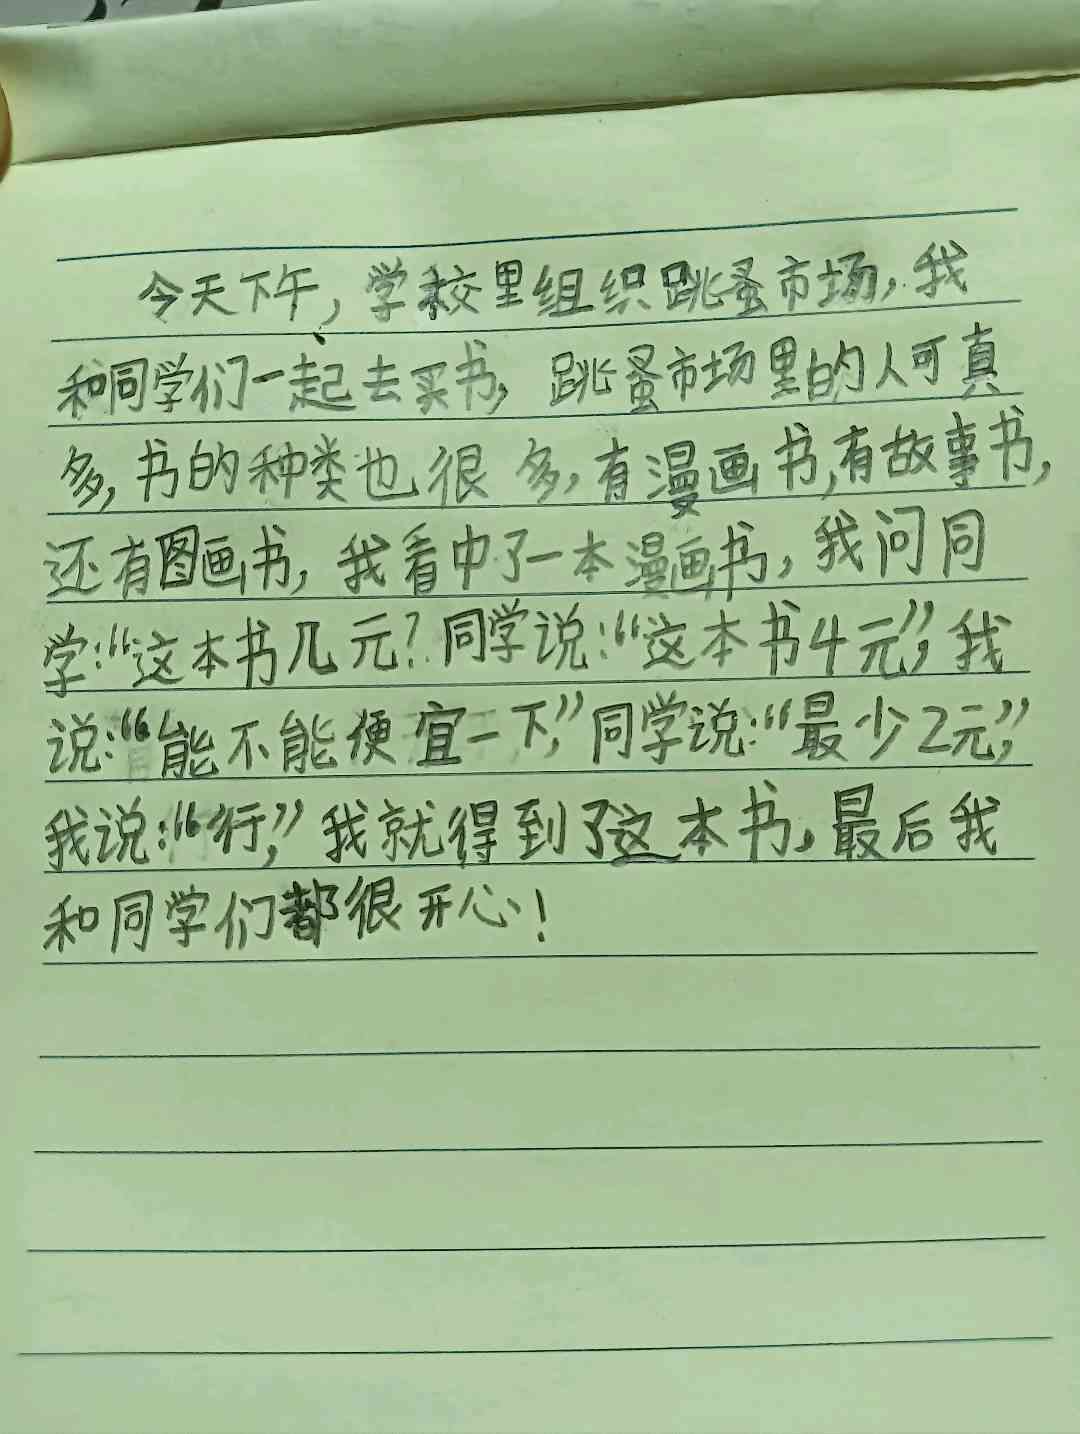 今天下午，学校里组织跳蚤市场，我
和同学们一起去买书，跳蚤市场里的人可真
多，书的种类也很多，有漫画书，有故事书，
还有图画书，我看中了一本漫画书，我问同
学：“这本书几元？同学说：“这本书4元”，我
说：“能不能便宜一下，”同学说：“最少2元”，
我说：“行，”我就得到了这本书，最后我
和同学们都很开心！